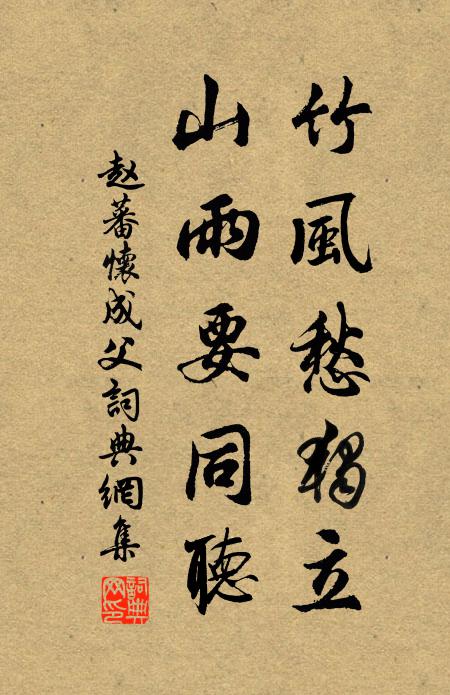 竹風愁獨立
山雨要同聽
赵蕃懷成父詞典網集
詞典网印